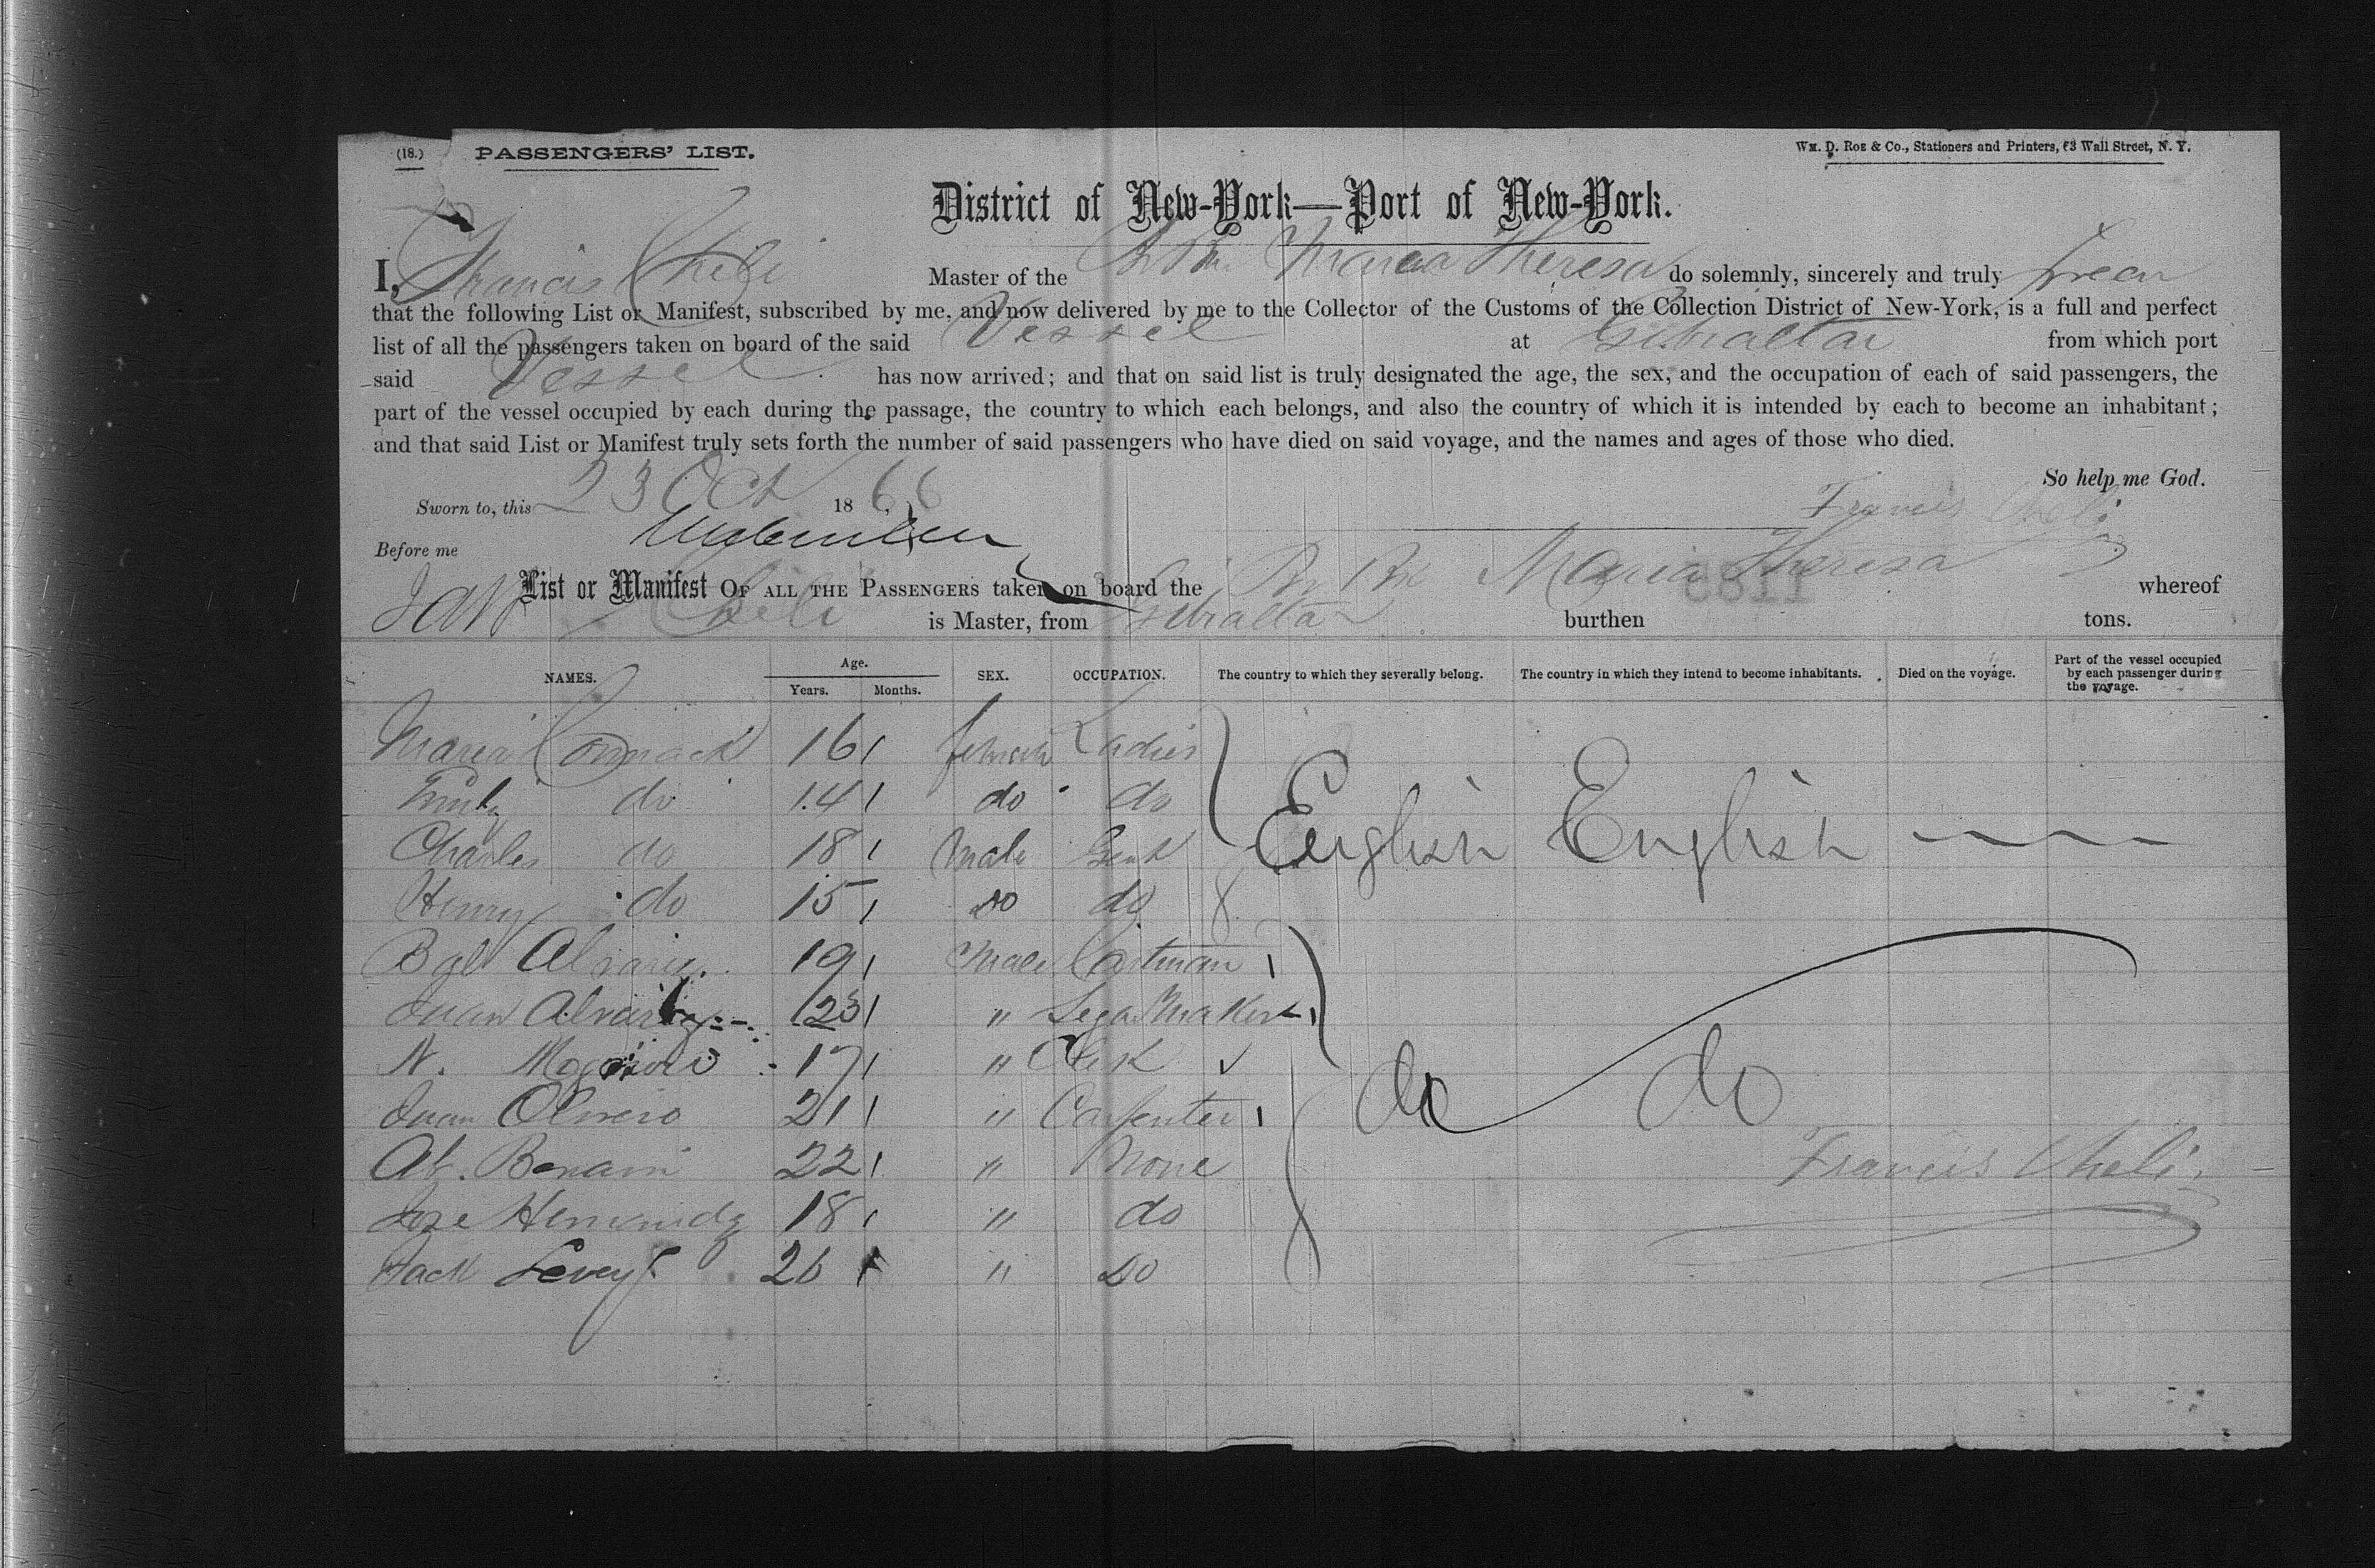 (18.) PASSENGERS' LIST. WM. D. ROE & CO., Stationers and Printers, 63 Wall Street, N. Y.
District of New-York—Port of New-York.
I, Francis Cheli Master of the Br Bk Maria Theresa do solemnly, sincerely and truly swear
that the following List or Manifest, subscribed by me, and now delivered by me to the Collector of the Customs of the Collection District of New-York, is a full and perfect
list of all the passengers taken on board of the said Vessel at Gibraltar from which port
said Vessel has now arrived; and that on said list is truly designated the age, the sex, and the occupation of each of said passengers, the
part of the vessel occupied by each during the passage, the country to which each belongs, and also the country of which it is intended by each to become an inhabitant;
and that said List or Manifest truly sets forth the number of said passengers who have died on said voyage, and the names and ages of those who died.
So help me God.
Sworn to, this 23 Oct 1866 Francis Cheli
Before me
List or Manifest OF ALL THE PASSENGERS taken on board the Br Bk Maria Theresa whereof
Cheli is Master, from Gibraltar burthen tons.
NAMES. Age. Years. Months. SEX. OCCUPATION. The country to which they severally belong. The country in which they intend to become inhabitants. Died on the voyage. Part of the vessel occupied by each passenger during the voyage.
Maria Cormack 16 female Ladies
Emily do 14 do do
Charles do 18 Male Gent English English
Henry do 15 do do
19 Male
Juan 23 " Segar Maker
N. 17 " Clerk
Juan Olivero 21 " Carpenter do do
Ab. 22 " None Francis Cheli
Jose Hernandz 18 " do
Jack Levey 26 " do